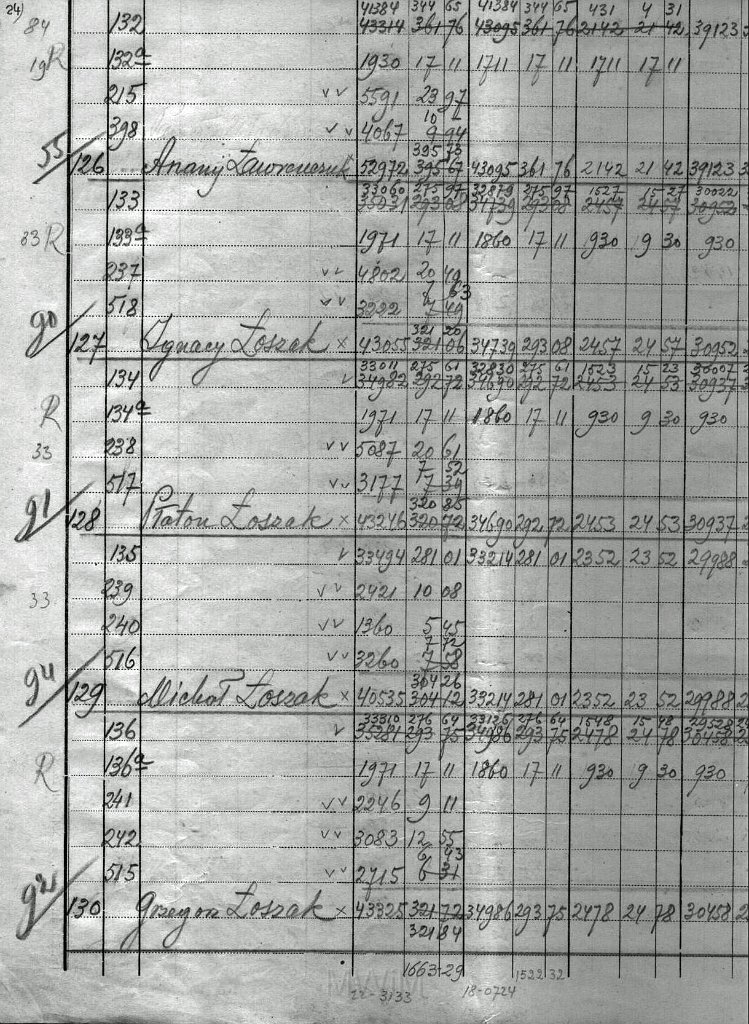 24)
41384 344 65 41384 344 65 431 4 31
84 132 43314 361 76 43095 361 76 2142 21 42 39123
19 R 132a 1930 17 11 1711 17 11 1711 17 11
215 v v 5591 23 97
10
398 v v 4067 9 94
395 73
55/ 126 Anany Ławreniuk 52972 395 67 43095 361 76 2142 21 42 39123
33060 275 97 32879 275 97 1527 15 27 30022
133 35031 293 08 34739 293 08 2457 24 57 30952
83 R 133a 1971 17 11 1860 17 11 930 9 30 930
237 v v 4802 20 49
7 63
518 v v 3222 7 49
321 20
90/ 127 Ignacy Łoszak x 43055 321 06 34739 293 08 2457 24 57 30952
33011 275 61 32830 275 61 1523 15 23 30007
134 v 34982 292 72 34690 292 72 2453 24 53 30937
R 134a 1971 17 11 1860 17 11 930 9 30 930
33 238 v v 5087 20 61
7 52
517 v v 3177 7 39
320 85
91/ 128 Płaton Łoszak x 43246 320 72 34690 292 72 2453 24 53 30937
135 v 33494 281 01 33214 281 01 2352 23 52 29988
33 239 v v 2421 10 08
240 v v 1360 5 45
7 72
516 v v 3260 7 58
304 26
94/ 129 Michał Łoszak x 40535 304 12 33214 281 01 2352 23 52 29988
33310 276 64 33126 276 64 1548 15 48 29528
136 v 35281 293 75 34986 293 75 2478 24 78 30458
R 136a 1971 17 11 1860 17 11 930 9 30 930
241 v v 2246 9 11
242 v v 3083 12 55
6 43
515 v v 2715 6 31
92/ 130 Grzegorz Łoszak x 43325 321 72 34986 293 75 2478 24 78 30458
321 84
1663 29 1522 32
22-3133 18-0724